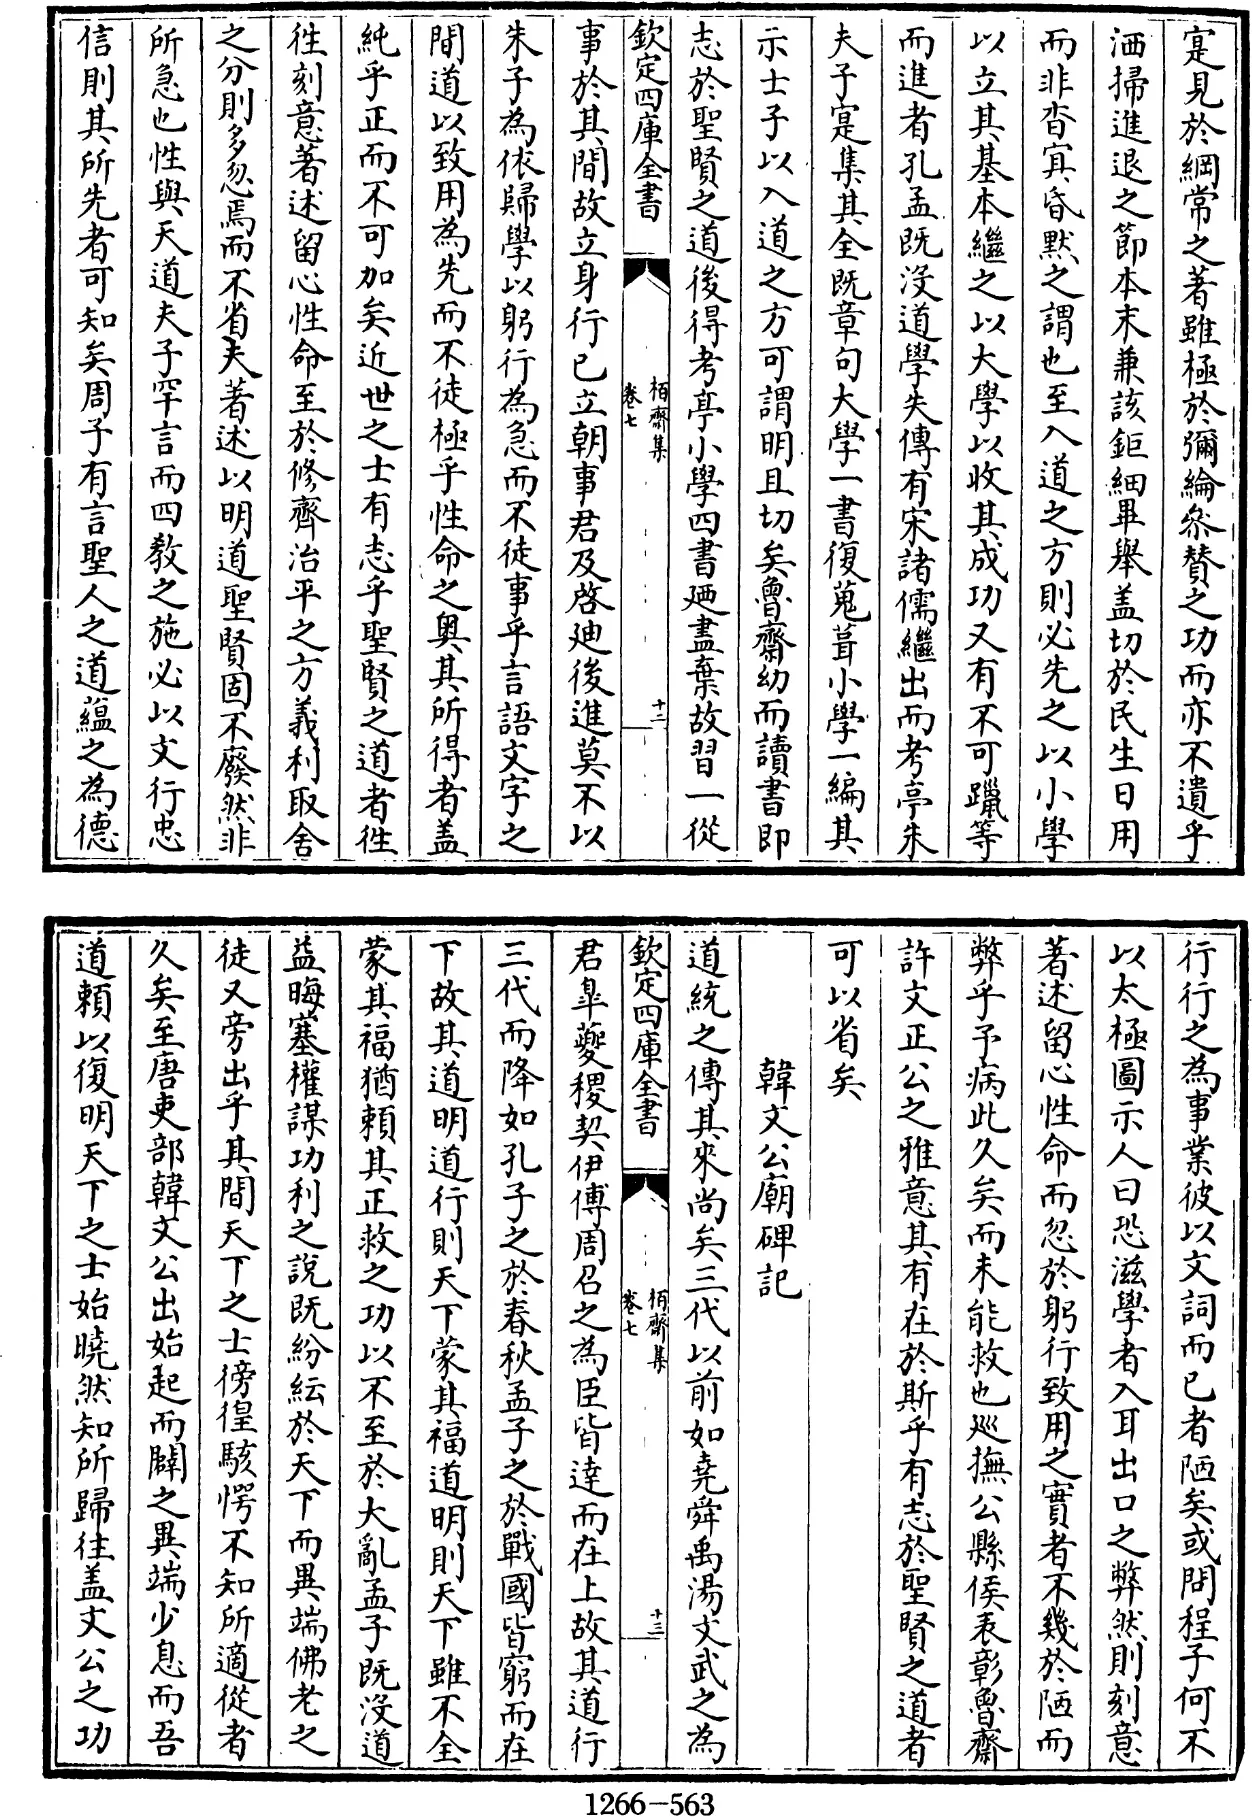 寔見於綱常之著雖極於彌綸叅賛之功而亦不遺乎
洒掃進退之節本末兼該鉅細畢舉盖切於民生日用
而非杳㝠昏默之謂也至入道之方則必先之以小學
以立其基本繼之以大學以收其成功又有不可躐等
而進者孔孟既没道學失傳有宋諸儒繼出而考亭朱
夫子寔集其全既章句大學一書復蒐葺小學一編其
示士子以入道之方可謂明且切矣魯齋幼而讀書即
志於聖賢之道後得考亭小學四書廼盡棄故習一從
欽定四庫全書
栢齋集
卷七
十二
事於其間故立身行已立朝事君及啓廸後進莫不以
朱子為依歸學以躬行為急而不徒事乎言語文字之
間道以致用為先而不徒極乎性命之奥其所得者盖
純乎正而不可加矣近世之士有志乎聖賢之道者徃
徃刻意著述留心性命至於修齊治平之方義利取舍
之分則多忽焉而不省夫著述以明道聖賢固不廢然非
所急也性與天道夫子罕言而四教之施必以文行忠
信則其所先者可知矣周子有言聖人之道蘊之為德
行行之為事業彼以文詞而已者陋矣或問程子何不
以太極圖示人曰恐滋學者入耳出口之弊然則刻意
著述留心性命而忽於躬行致用之實者不幾於陋而
弊乎予病此久矣而未能救也廵撫公縣侯表彰魯齋
許文正公之雅意其有在於斯乎有志於聖賢之道者
可以省矣
韓文公廟碑記
道統之傳其來尚矣三代以前如堯舜禹湯文武之為
欽定四庫全書
栢齋集
卷七
十三
君臯夔稷契伊傅周召之為臣皆達而在上故其道行
三代而降如孔子之於春秋孟子之於戰國皆窮而在
下故其道明道行則天下蒙其福道明則天下雖不全
蒙其福猶賴其正救之功以不至於大亂孟子既没道
益晦塞權謀功利之說既紛紜於天下而異端佛老之
徒又旁出乎其間天下之士徬徨駭愕不知所適從者
久矣至唐吏部韓文公出始起而闢之異端少息而吾
道賴以復明天下之士始曉然知所歸往盖文公之功
1266—563